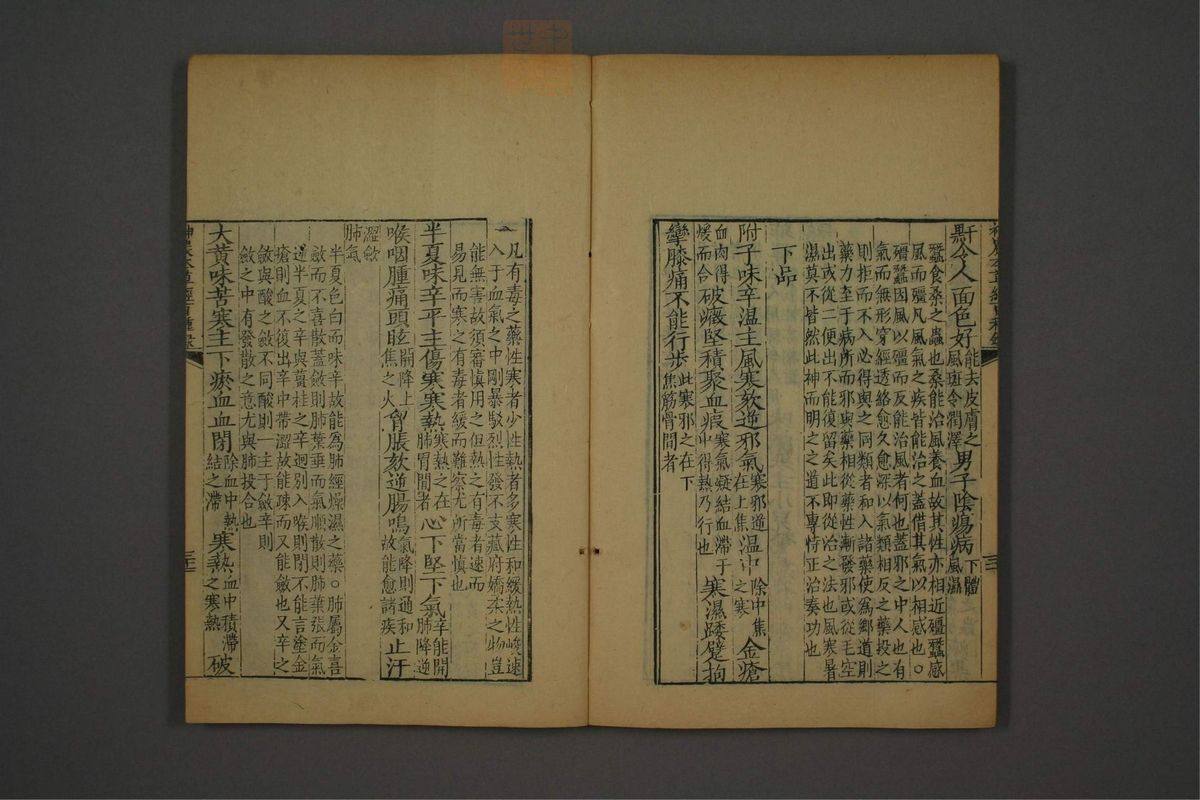 皯令人面色好能去皮膚之風斑令潤澤男子陰瘍病下體風濕
蠶食桑之蟲也桑能治風養血故其性亦相近殭蠶感
風而殭凡風氣之疾皆能治之蓋借其氣以相感也○
殭蠶因風以殭而反能治風者何也蓋邪之中人也有
氣而無形穿經透絡愈久愈深以氣類相反之藥投之
則拒而不入必得與之同類者和入諸藥使爲鄉道則
藥力至于病所而邪與藥相從藥性漸發邪或從毛空
出或從二便出不能復留矣此即從治之法也風寒暑
濕莫不皆然此神而明之之道不專恃正治奏功也
下品
附子味辛温主風寒欬逆邪氣寒邪逆在上焦温中除中焦之寒金瘡
血肉得煖而合破癥堅積聚血瘕寒氣凝結血滯于中得熱乃行也寒濕踒躄拘
攣膝痛不能行步此寒邪之在下焦筋骨間者
凡有毒之藥性寒者少性熱者多寒性和緩熱性峻速
入于血氣之中剛暴駁烈性發不支藏府嬌柔之物豈
能無害故須審慎用之但熱之有毒者速而
易見而寒之有毒者緩而難察尤所當慎也
半夏味辛平主傷寒寒熱寒熱之在肺胃間者心下堅下氣辛能開肺降逆
喉咽腫痛頭眩開降上焦之火胷脹欬逆腸鳴氣降則通和故能愈諸疾止汗
澀斂肺氣
半夏色白而味辛故能爲肺經燥濕之藥○肺屬金喜
斂而不喜散蓋斂則肺葉垂而氣順散則肺葉張而氣
逆半夏之辛與薑桂之辛迥別入喉則閉不能言塗金
瘡則血不復出辛中帶澀故能疎而又能斂也又辛之
斂與酸之斂不同酸則一主于斂辛則
斂之中有發散之意尤與肺投合也
大黃味苦寒主下瘀血血閉除血中熱結之滯寒熱血中積滯之寒熱破